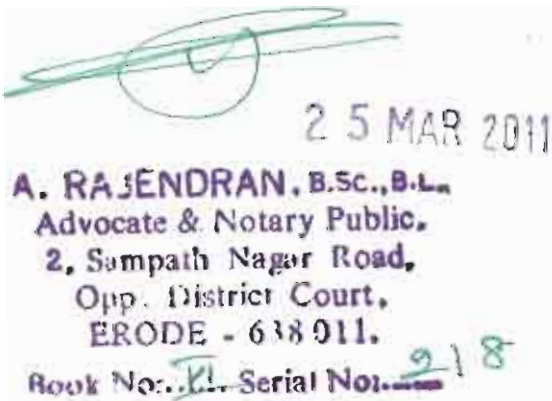 25 MAR 2011
A. RAJENDRAN, B.Sc., B.L.,
Advocate & Notary Public.
2, Sampath Nagar Road,
Opp. District Court,
ERODE - 638 011.
Book No: XI. Serial No: 218